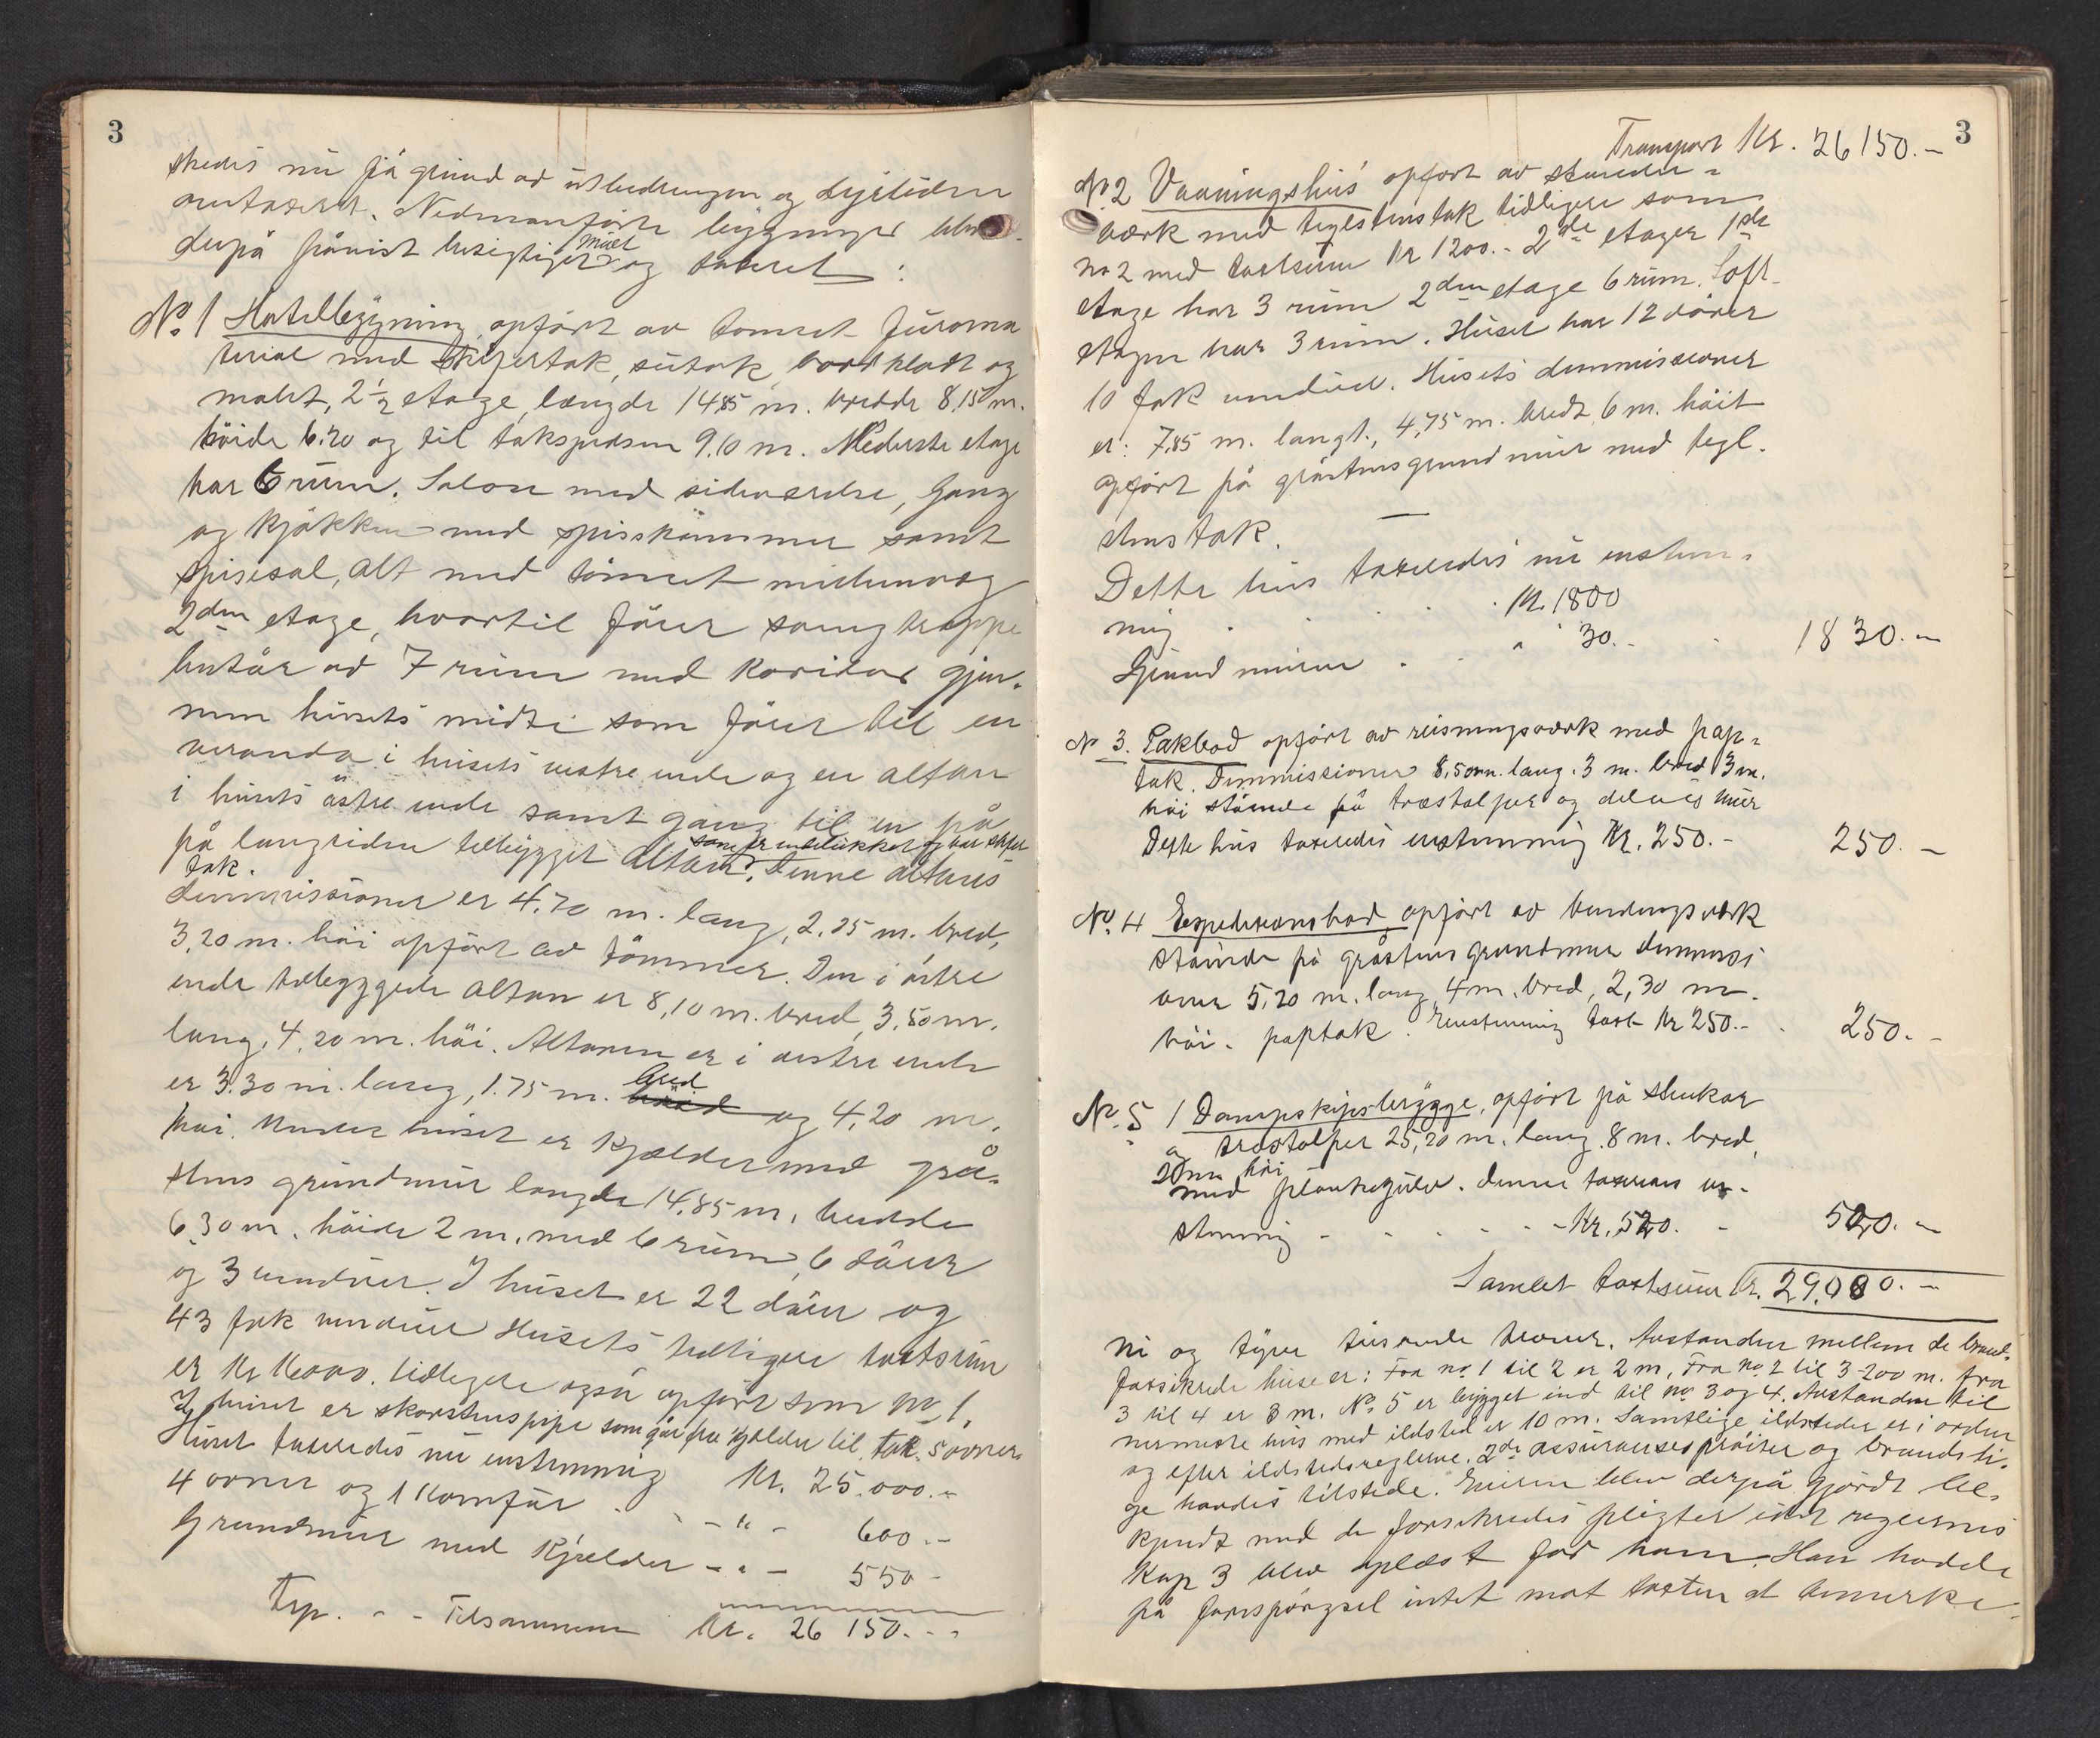 3
skedes nu på grund av utbedringen og dyrtiden
omtaxert. Nedenanførte bygninger blev
derpå påvist besigtiget målt og taxert:
No. 1 Hotelbygning opført av tømret furuma
terial med skifertak, sutak, bordklædt og
malet, 2½ etage, længde 14,85 m. bredde 8,15 m.
høide 6.20 og til takspidsen 9.10 m. Nederste etage
har 6 rum. Salon med sideværelse, Gang
og kjøkken med spiskammer samt
spisesal, alt med tømret mellemvæg
2den etage, hvortil fører trappe
består av 7 rum med korridor gjen-
nem husets midte som fører til en
veranda i husets vestre ende og en altan
i husets østre ende samt gang til en på
på langsiden tilbygget altan, som er indelukket og har skifer
tak. Denne altans
dimmissioner er 4.70 m. lang, 2.25 m. bred,
3,20 m. høi opført av tømmer. Den i østre
ende tilbyggede altan er 8,10 m. bred 3,50 m.
lang, 4,20 m. høi. Altanen er i vestre ende
er 3.30 m. lang, 1.75 m. bred og 4,20 m.
høi. Under huset er kjælder med grå-
stens grundmur længde 14.85 m, bredde
6.30 m. høide 2 m. med 6 rum, 6 dører
og 3 vinduer. I huset er 22 dører og
43 fak vinduer Husets tidligere taxtsum
er kr 16000. tidligere også opført som no 1.
I huset er skorstenspipe som går fra kjælder til tak. 5 ovner
Huset taxeredes nu enstemmig Kr. 25.000.-
4 ovner og 1 komfur - " - 600.-
Grundmur med kjælder - " - 550-
Trp. - - Tilsammen Kr. 26 150.-
3
Transport Kr. 26150.-
No. 2 Vaaningshus opført av stender-
værk med teglstenstak tidligere som
no 2 med taxtsum kr 1200.- 2de etager 1ste
etage har 3 rum 2den etage 6 rum. Loft-
etagen har 3 rum. Huset har 12 dører
10 fak vinduer. Husets dimmissioner
er: 7,85 m. langt., 4,75 m. bredt 6 m. høit
opført på gråstensgrundmur med tegl-
stens tak.
Dette hus taxeredes nu enstem-
mig . . . Kr. 1800
Grundmuren . . " 30.- 1830.-
No 3. Pakbod opført av reisningsværk med pap-
tak. Dimmissioner 8,50 m. lang. 3 m. bred 3 m.
høi stående på træstolper og delvis mur
Dette hus taxeredes enstemmig Kr. 250.- 250.-
No. 4 Expedisionsbod, opført av bindingsværk
stående på gråstens grundmur dimmissi
oner 5,20 m. lang, 4 m. bred, 2,30 m.
høi. paptak. Enstemmig taxt kr 250.- 250.-
No. 5 1 Dampskipsbrygge, opført på stenkar
og træstolper 25,20 m. lang. 8 m. bred,
høi
med plankegulv. Denne taxeres en-
stemmig - - - - Kr. 520.- 520.-
Samlet taxtsum Kr. 29,000.-
ni og tyve tusende kroner. Avstanden mellem de brand-
forsikrede huse er: Fra no 1 til 2 er 2 m, Fra no 2 til 3 200 m. fra
3 til 4 er 8 m. No 5 er bygget ind til no 3 og 4. Avstanden til
nermeste hus med ildsted er 10 m. Samtlige ildsteder er i orden
og efter ildstedsreglerne. 2de assuransesprøiter og brandsti-
ge havdes tilstede. Eieren blev derpå gjordt be-
kjendt med de forsikredes pligter idet reglernes
Kap 3 blev oplæst for ham. Han hadde
på forespørgsel intet mot taxten at bemerke.